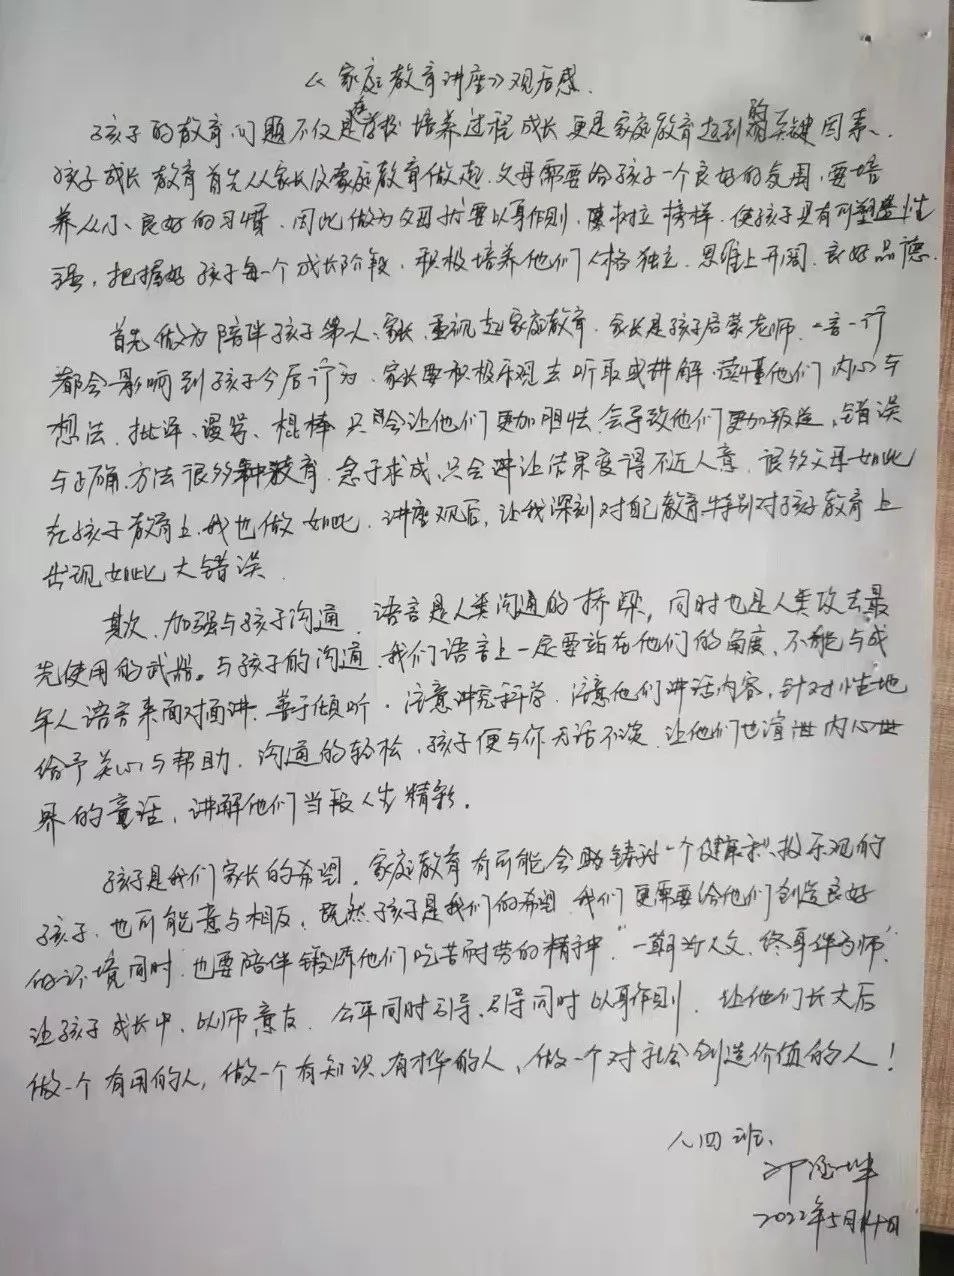 《家庭教育讲座》观后感
孩子的教育问题不仅是在学校培养过程成长更是家庭教育起到的关键因素、
孩子成长教育首先从家长及家庭教育做起.父母需要给孩子一个良好的氛围,要培
养从小、良好的习惯,因此做为父母我要以身作则,树立榜样,使孩子具有可塑造性
强,把握好孩子每一个成长阶段,积极培养他们人格独立.思维上开阔.良好品德.
首先做为陪伴孩子第一人、家长,重视起家庭教育.家长是孩子启蒙老师.一言一行
都会影响到孩子今后行为.家长要积极乐观去听取或讲解.读懂他们内心与
想法.批评、谩骂、棍棒只会让他们更加胆怯.会导致他们更加叛逆,错误
与正确.方法很多种教育.急于求成.只会让结果变得不近人意.很多父母如此
在孩子教育上.我也做如此.讲座观后,让我深刻对自己教育,特别对孩子教育上
出现如此大错误.
其次、加强与孩子沟通.语言是人类沟通的桥梁,同时也是人类攻击最
先使用的武器。与孩子的沟通.我们语言上一定要站在他们的角度、不能与成
年人语言来面对面讲.善于倾听.注意讲究科学.注意他们讲话内容,针对性地
给予关心与帮助.沟通的轻松,孩子便与你无话不谈.让他们也渲泄内心世
界的童话,讲解他们当段人生精彩.
孩子是我们家长的希望.家庭教育有可能会铸就一个健康积极乐观的
孩子.也可能意与相反.既然孩子是我们的希望.我们更需要给他们创造良好
的环境同时.也要陪伴锻炼他们吃苦耐劳的精神."一朝为人父.终身伴为师."
让孩子成长中.以师意友.同时引导.引导同时以身作则.让他们长大后
做一个有用的人,做一个有知识.有才华的人、做一个对社会创造价值的人!
八四班、
2022年5月